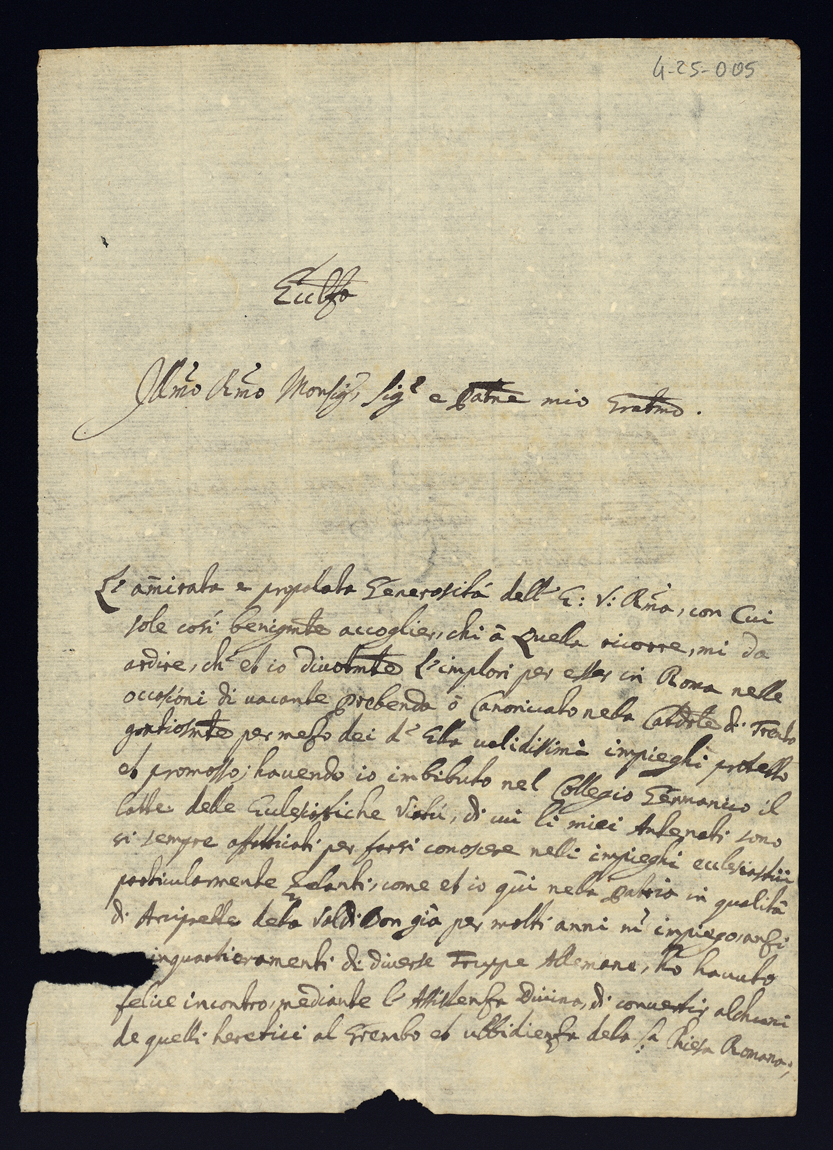 4-25-005
Illmo Rmo Monsigr, Sigr e Padne mio
L'amirata e propolata Generosità dell'E: V: Rma, con cui
sole così benignte accoglier, chi à Quella ricorre, mi da
ardire, ch'et io divotmte L'implori per esser in Roma nelle
occasioni di vacante Prebenda ò Canonicato nela Catdrle di Trento
gratiosmte per mezo dei di Ella validissimi impieghi protetto
et promosso; havendo io imbibuto nel Collegio Germanico il
latte delle Eclesiastiche Virtù, di cui li miei Antenati sono
si sempre affatticati per farsi conoscere nelli impieghi eclesiastici
particularmente Zelanti, come et io qùi nela Patria in qualità
di Arciprette dela Val di Non già per molti anni m'impiego, anzi
inquartieramenti di diverse Truppe Allemane, hò havuto
felice incontro, mediante l'Assistenza Divina, di convertir alchuni
de quelli heretici al Grembo et ubbidienza dela Sa Chiesa Romana;